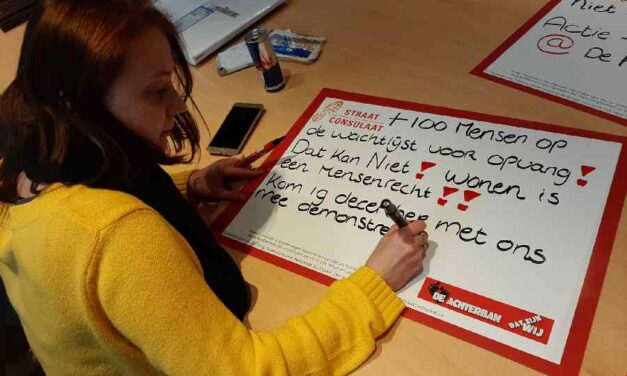 STRAAT
CONSULAAT
+100 Mensen op
de wachtlijst voor opvang!
Dat Kan Niet! Wonen is
een Mensenrecht!!
Kom 19 december met ons
mee demonstre
DE ACHTERBAN
DAT ZIJN
WIJ
Niet
Actie
@ De